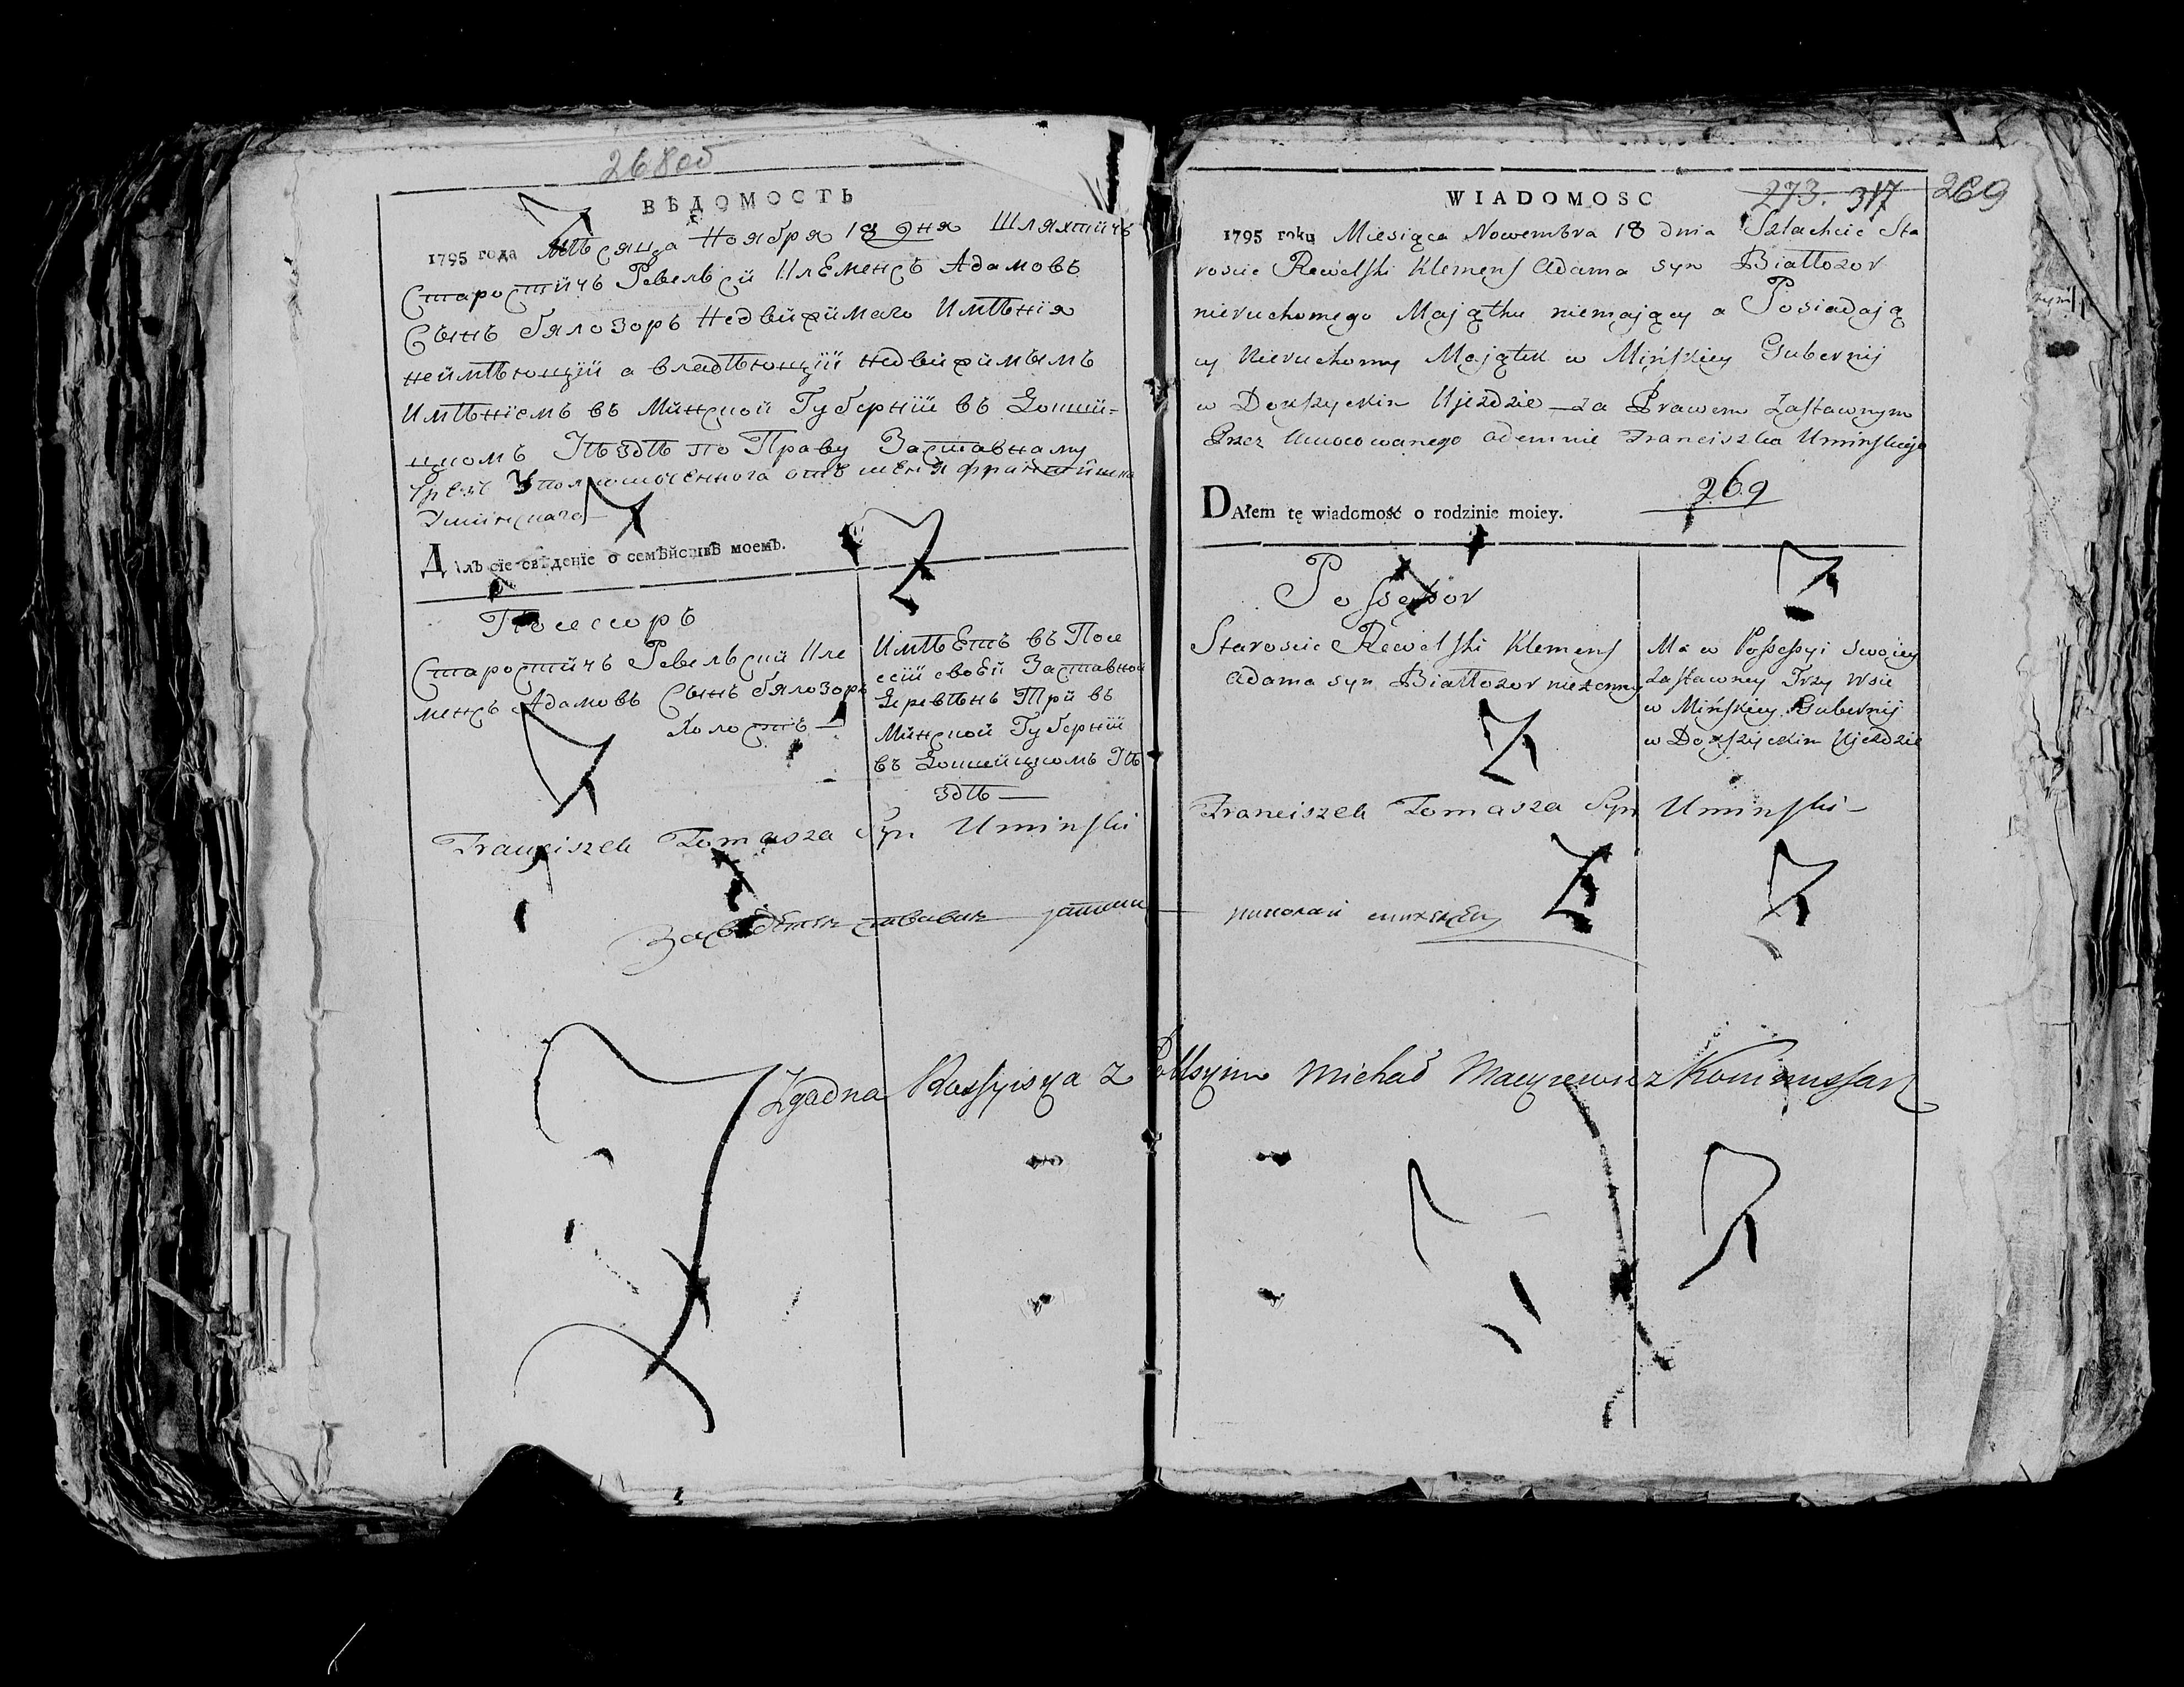 268об
ВѢДОМОСТЬ
1795 года Мѣсяца Ноября 18 дня Шляхтичъ
Старостичъ Ревельсй Клеменсъ Адамовъ
Сынъ Бялозоръ Недвижимаго Имѣнія
неимѣющій а владѣющій недвижимымъ
Имѣніемъ въ Минской Губерніи въ Докши-
цкомъ Уѣздѣ по Праву Заставному
чрезъ Уполномоченнога отъ меня Францишка
Уминскаго
Далъ сіе свѣденіе о семѣйствѣ моемъ.
Посессоръ
Старостичъ Ревельскій Кле
менсъ Адамовъ Сынъ Бялозоръ
Холостъ
Имѣетъ въ Посе
сіи своей Заставной
Деревѣнь Три въ
Минской Губерніи
въ Докшицкомъ Уѣ
здѣ
Franciszek Tomasza Syn Uminski
WIADOMOSC
273. 317 269
1795 roku Miesiąca Nowembra 18 dnia Szlachcic Sta
roscic Rewelski Klemens Adama syn Białłozor
nieruchomego Majątku niemający a Posiadają
cy Nieruchomy Majątek w Mińskiey Gubernij
w Dokszyckim Ujezdzie za Prawem Zastawnym
Przez Umocowanego odemnie Franciszka Uminskiego
269
DAłem tę wiadomość o rodzinie moiey.
Possessor
Staroscic Rewelski Klemens
Adama syn Białłozor nieżenny
Ma w Possessyi swoiey
Zastawney Trzy Wsie
w Mińskiey Gubernij
w Dokszyckim Ujezdzie
Franciszek Tomasza Syn Uminski
Zgadna Rossyiska z Polskim Michał Macyiewicz Kommissarz